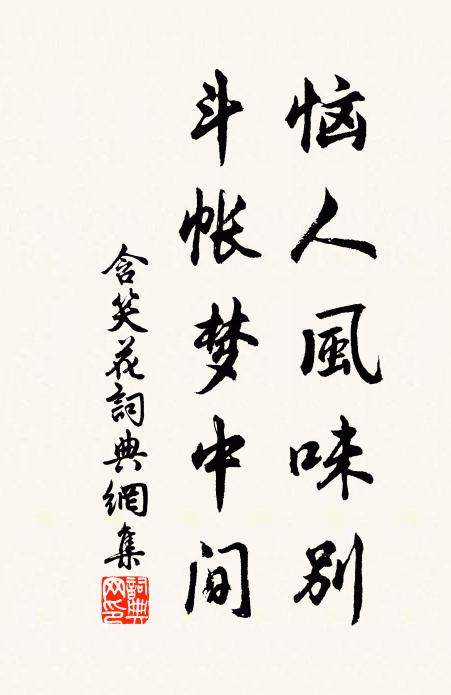 恼人風味别
斗帐梦中间
含笑花詞典網集
詞典网印